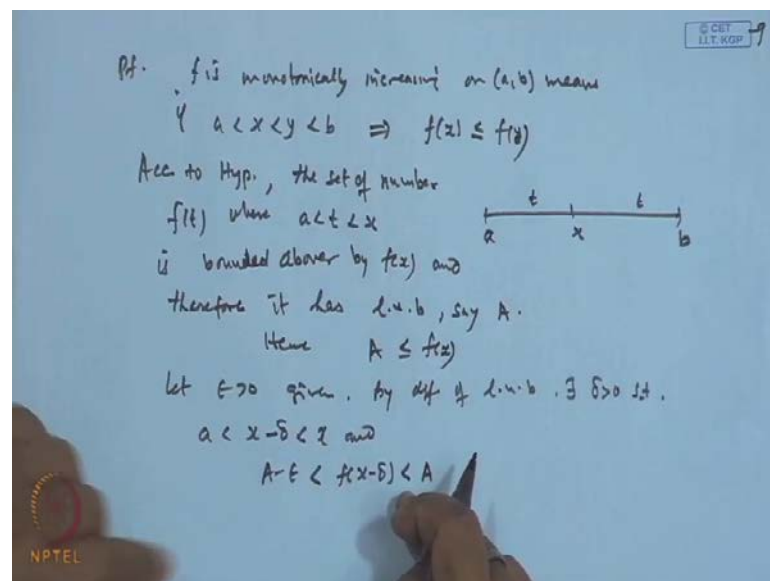 © CET
I.I.T. KGP
9
Pf. f is monotonically increasing on (a,b) means
if a < x < y < b ⇒ f(x) ≤ f(y)
Acc to Hyp., the set of number
f(t) where a < t < x
is bounded above by f(x) and
therefore it has l.u.b, say A.
Hence A ≤ f(x)
t t
a x b
Let ε>0 given. By def of l.u.b. ∃ δ>0 s.t.
a < x-δ < x and
A-ε < f(x-δ) < A
NPTEL